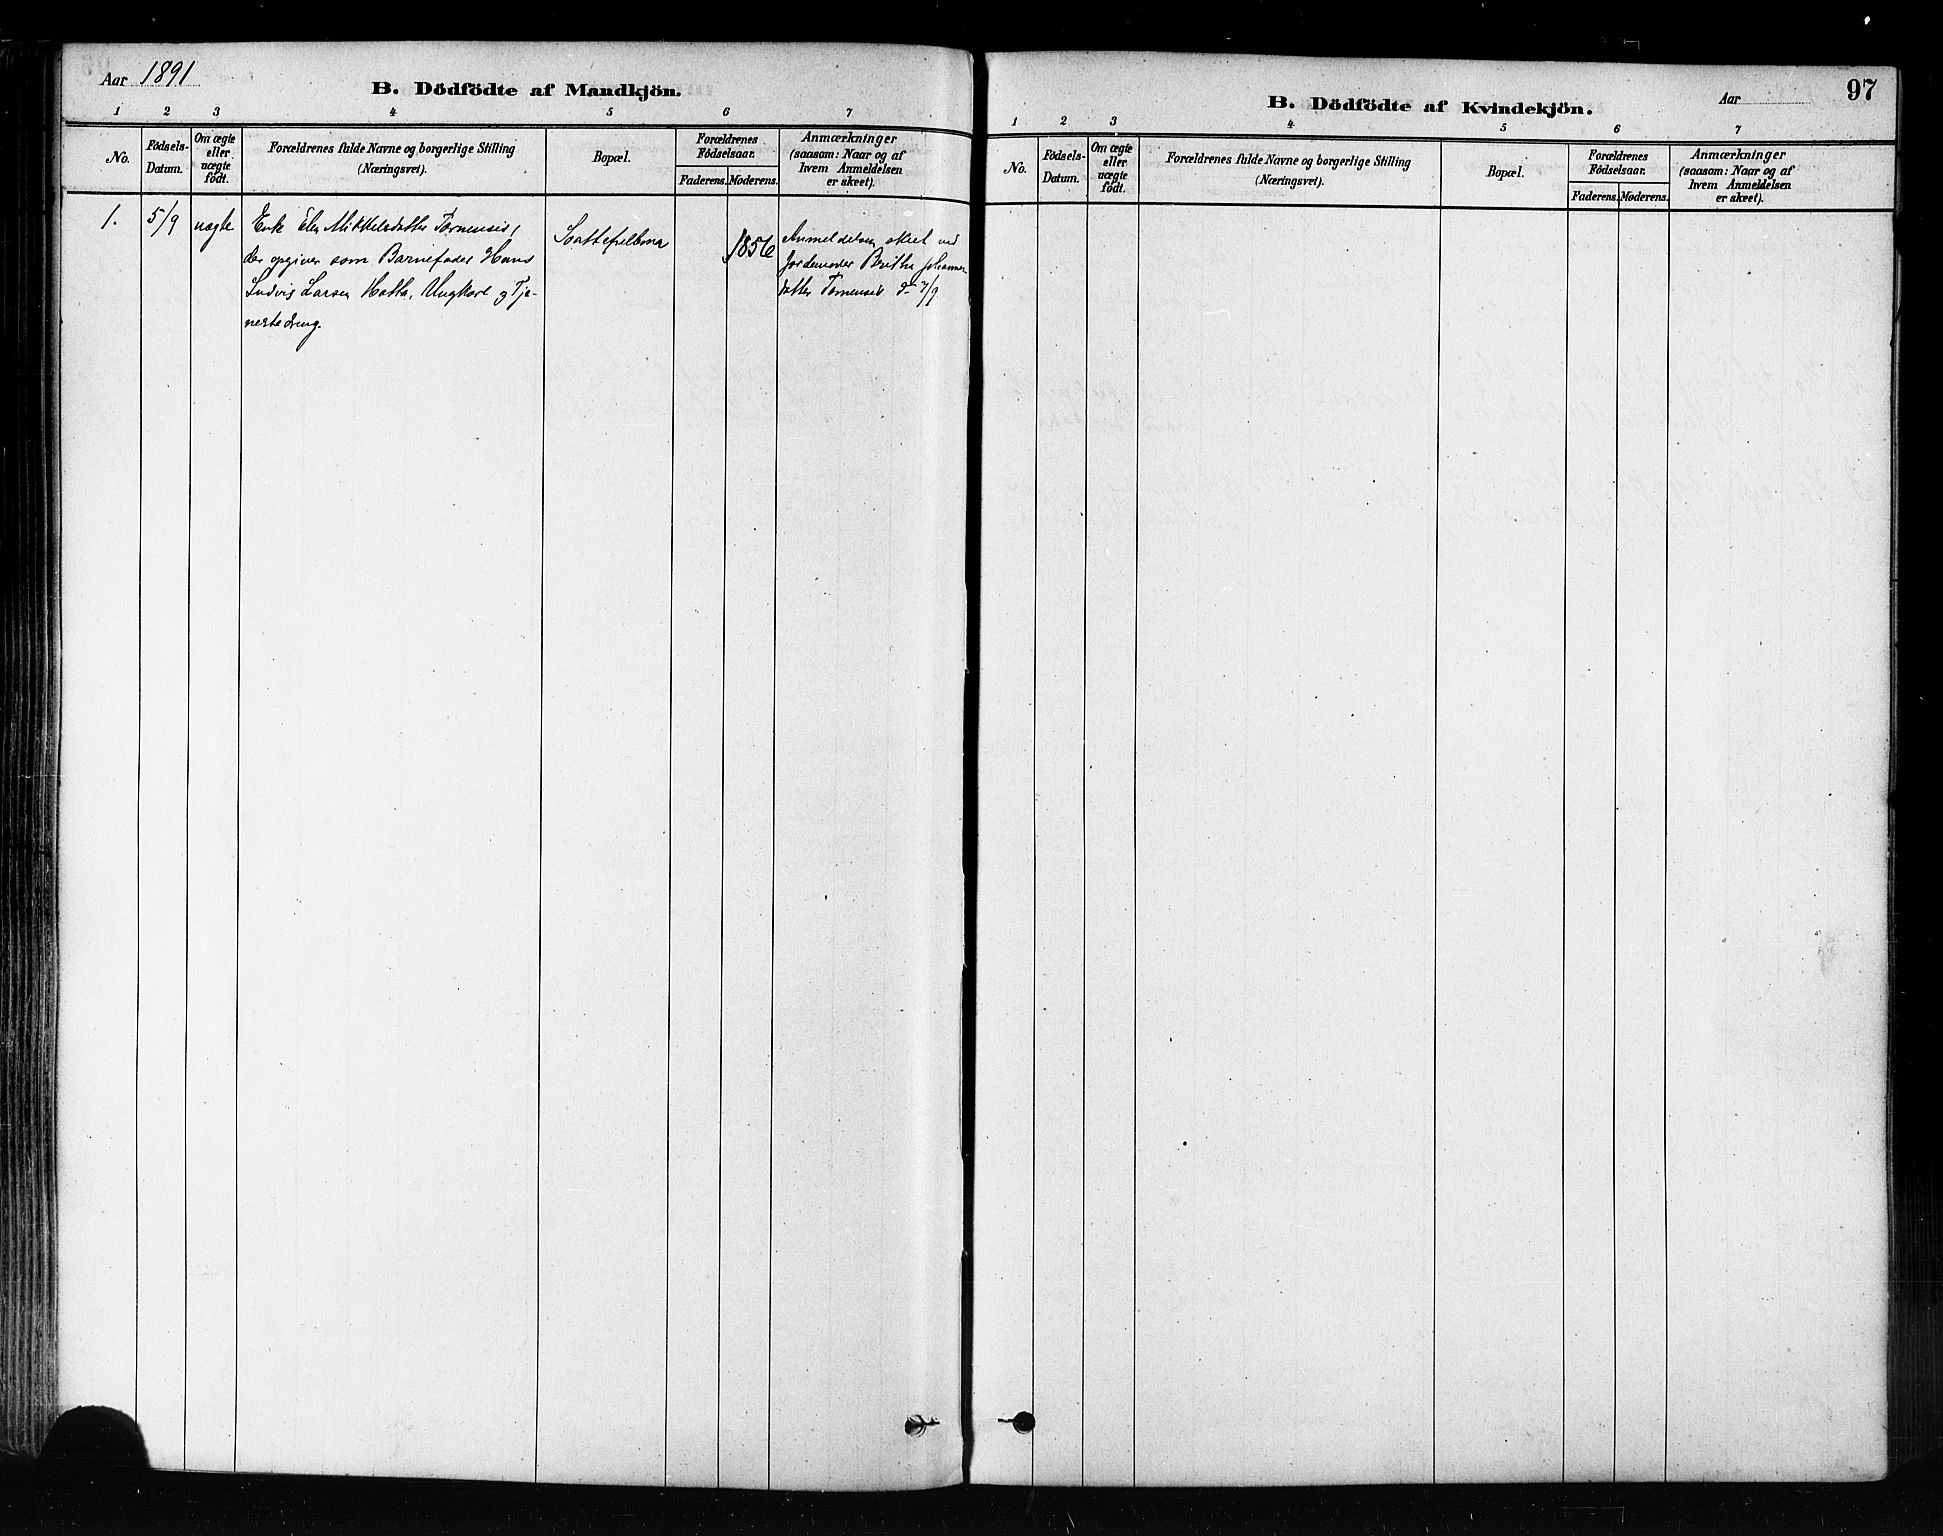 Aar 1891
B. Dödfödte af Mandkjön.
1 2 3 4 5 6 7
No.
Födsels-
Datum.
Om ægte
eller
uægte
födt.
Forældrenes fulde Navne og borgerlige Stilling
(Næringsvei).
Bopæl.
Forældrenes
Födselsaar.
Faderens. Moderens.
Anmærkninger
(saasom: Naar og af
hvem Anmeldelsen
er skeet).
1.
5/9
uægte
Enke Elen Mikkelsdatter Tornensis,
der opgiver som Barnefader Hans
Ludvig Larsen Hatta, Ungkarl og Tje-
nestedreng.
1856
Anmeldelsen skeet ved
Jordemoder Britha Johannes-
datter Tornensis 7/9
97
B. Dödfödte af Kvindekjön.
Aar
1 2 3 4 5 6 7
No.
Födsels-
Datum.
Om ægte
eller
uægte
födt.
Forældrenes fulde Navne og borgerlige Stilling
(Næringsvei).
Bopæl.
Forældrenes
Födselsaar.
Faderens. Moderens.
Anmærkninger
(saasom: Naar og af
hvem Anmeldelsen
er skeet).